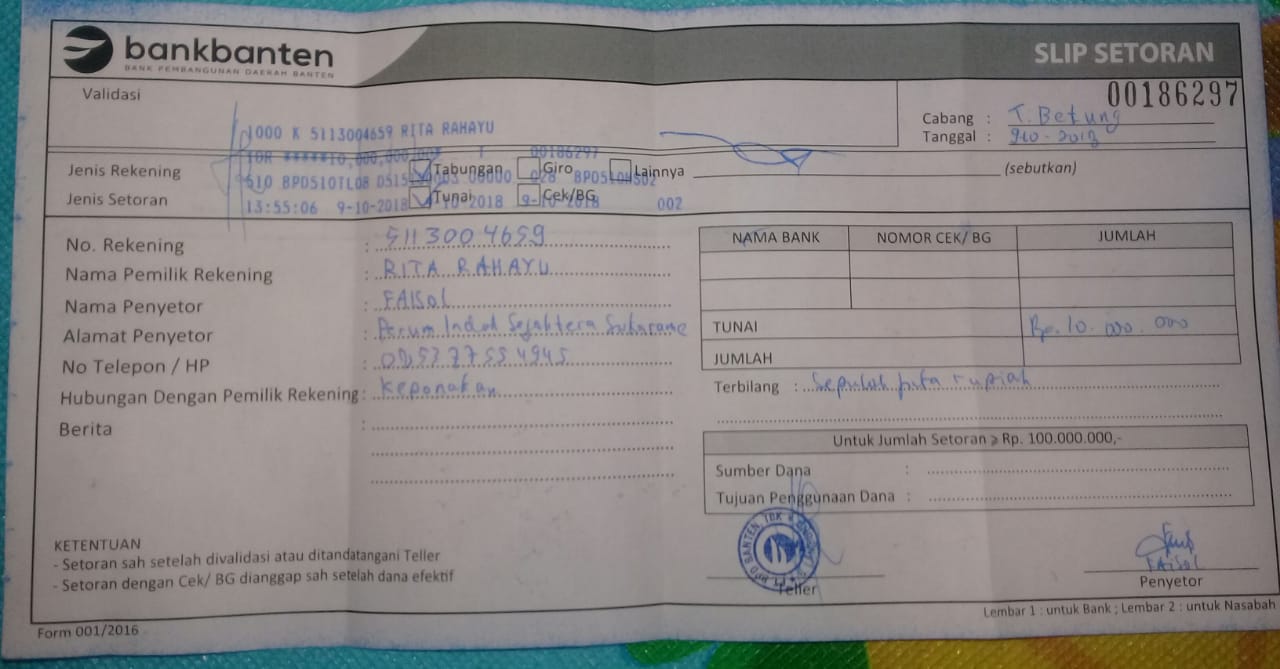 bankbanten
BANK PEMBANGUNAN DAERAH BANTEN
SLIP SETORAN
00186297
Validasi
Cabang : T. Betung
Tanggal : 910-2018
1000 K 5113004659 RITA RAHAYU
IDR ******10,000,000.00* 1 00186297
Jenis Rekening Tabungan Giro Lainnya (sebutkan)
9510 BPD510TL08 00000 028
Jenis Setoran Tunai Cek/BG
13:55:06 9-10-2018 10-2018 9-10-2018 002
No. Rekening : 5113004659
Nama Pemilik Rekening : RITA RAHAYU
Nama Penyetor : FAISOL
Alamat Penyetor : Perum Indah Sejahtera Sukarame
No Telepon / HP : 085377554945
Hubungan Dengan Pemilik Rekening : Keponakan
Berita :
NAMA BANK NOMOR CEK/ BG JUMLAH
TUNAI Rp. 10.000.000
JUMLAH
Terbilang : Sepuluh juta rupiah
Untuk Jumlah Setoran ⩾ Rp. 100.000.000,-
Sumber Dana :
Tujuan Penggunaan Dana :
KETENTUAN
- Setoran sah setelah divalidasi atau ditandatangani Teller
- Setoran dengan Cek/ BG dianggap sah setelah dana efektif
BANTEN, TBK
Teller
FAISOL
Penyetor
Form 001/2016
Lembar 1 : untuk Bank ; Lembar 2 : untuk Nasabah